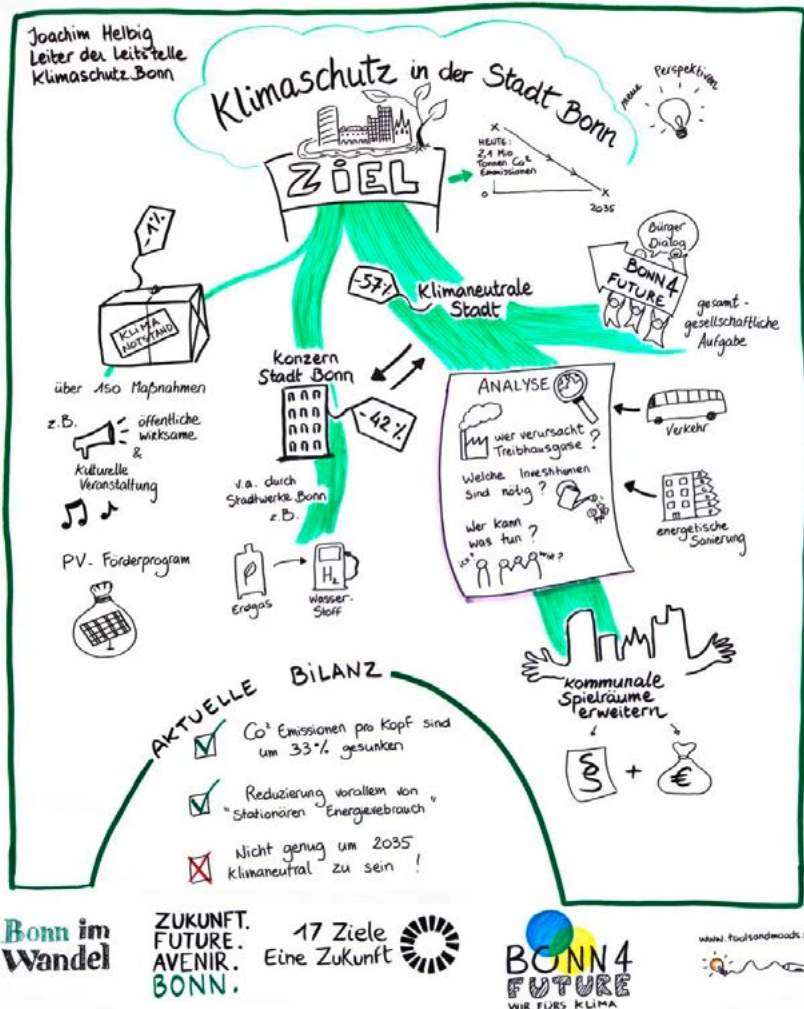 Joachim Helbig
Leiter der Leitstelle
Klimaschutz Bonn
Klimaschutz in der Stadt Bonn
neue Perspektiven
ZiEL
HEUTE:
2,1 Mio
Tonnen Co²
Emmissionen
0
2035
-1%
KLIMA
NOTSTAND
über 150 Maßnahmen
z.B.
öffentliche
wirksame
&
Kulturelle
Veranstaltung
PV-Förderprogram
-57%
Klimaneutrale
Stadt
Bürger
Dialog
BONN4
FUTURE
gesamt-
gesellschaftliche
Aufgabe
Konzern
Stadt Bonn
-42%
v.a. durch
Stadtwerke Bonn
z.B.
Erdgas
H₂
Wasser-
Stoff
ANALYSE
wer verursacht
Treibhausgase?
Welche Investitionen
sind nötig?
Wer kann
was tun?
Verkehr
energetische
Sanierung
kommunale
Spielräume
erweitern
§ + €
AKTUELLE BiLANZ
Co² Emissionen pro Kopf sind
um 33% gesunken
Reduzierung vorallem von
"Stationären Energievebrauch"
Nicht genug um 2035
klimaneutral zu sein!
Bonn im
Wandel
ZUKUNFT.
FUTURE.
AVENIR.
BONN.
17 Ziele
Eine Zukunft
BONN4
FUTURE
WIR FÜRS KLIMA